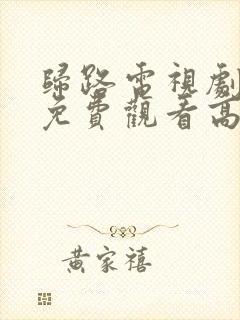 歸路電視劇
免費觀看高
黃家禧